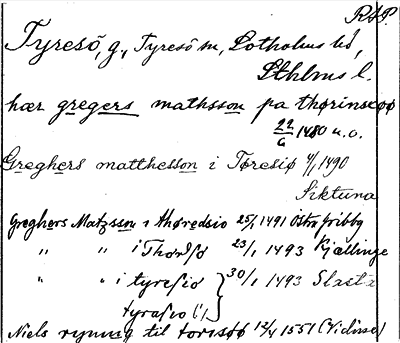 RAP.
Tyresö, g., Tyresö sn, Sotholms hd,
Sthlms l.
hær gregers mathsson pa thørinsøø
22/6 1480 u.o.
Greghers matthesson i Tøresiø 4/1 1490
Siktuna
Greghers Matzsson i Thøredsio 25/1 1491 Östra fribby
" " i Thordsø 23/1 1493 Kjællinge
" " i tyresio } 30/1 1493 Slasta
tyrasio (!)
Niels ryning til torssøø 12/4 1551